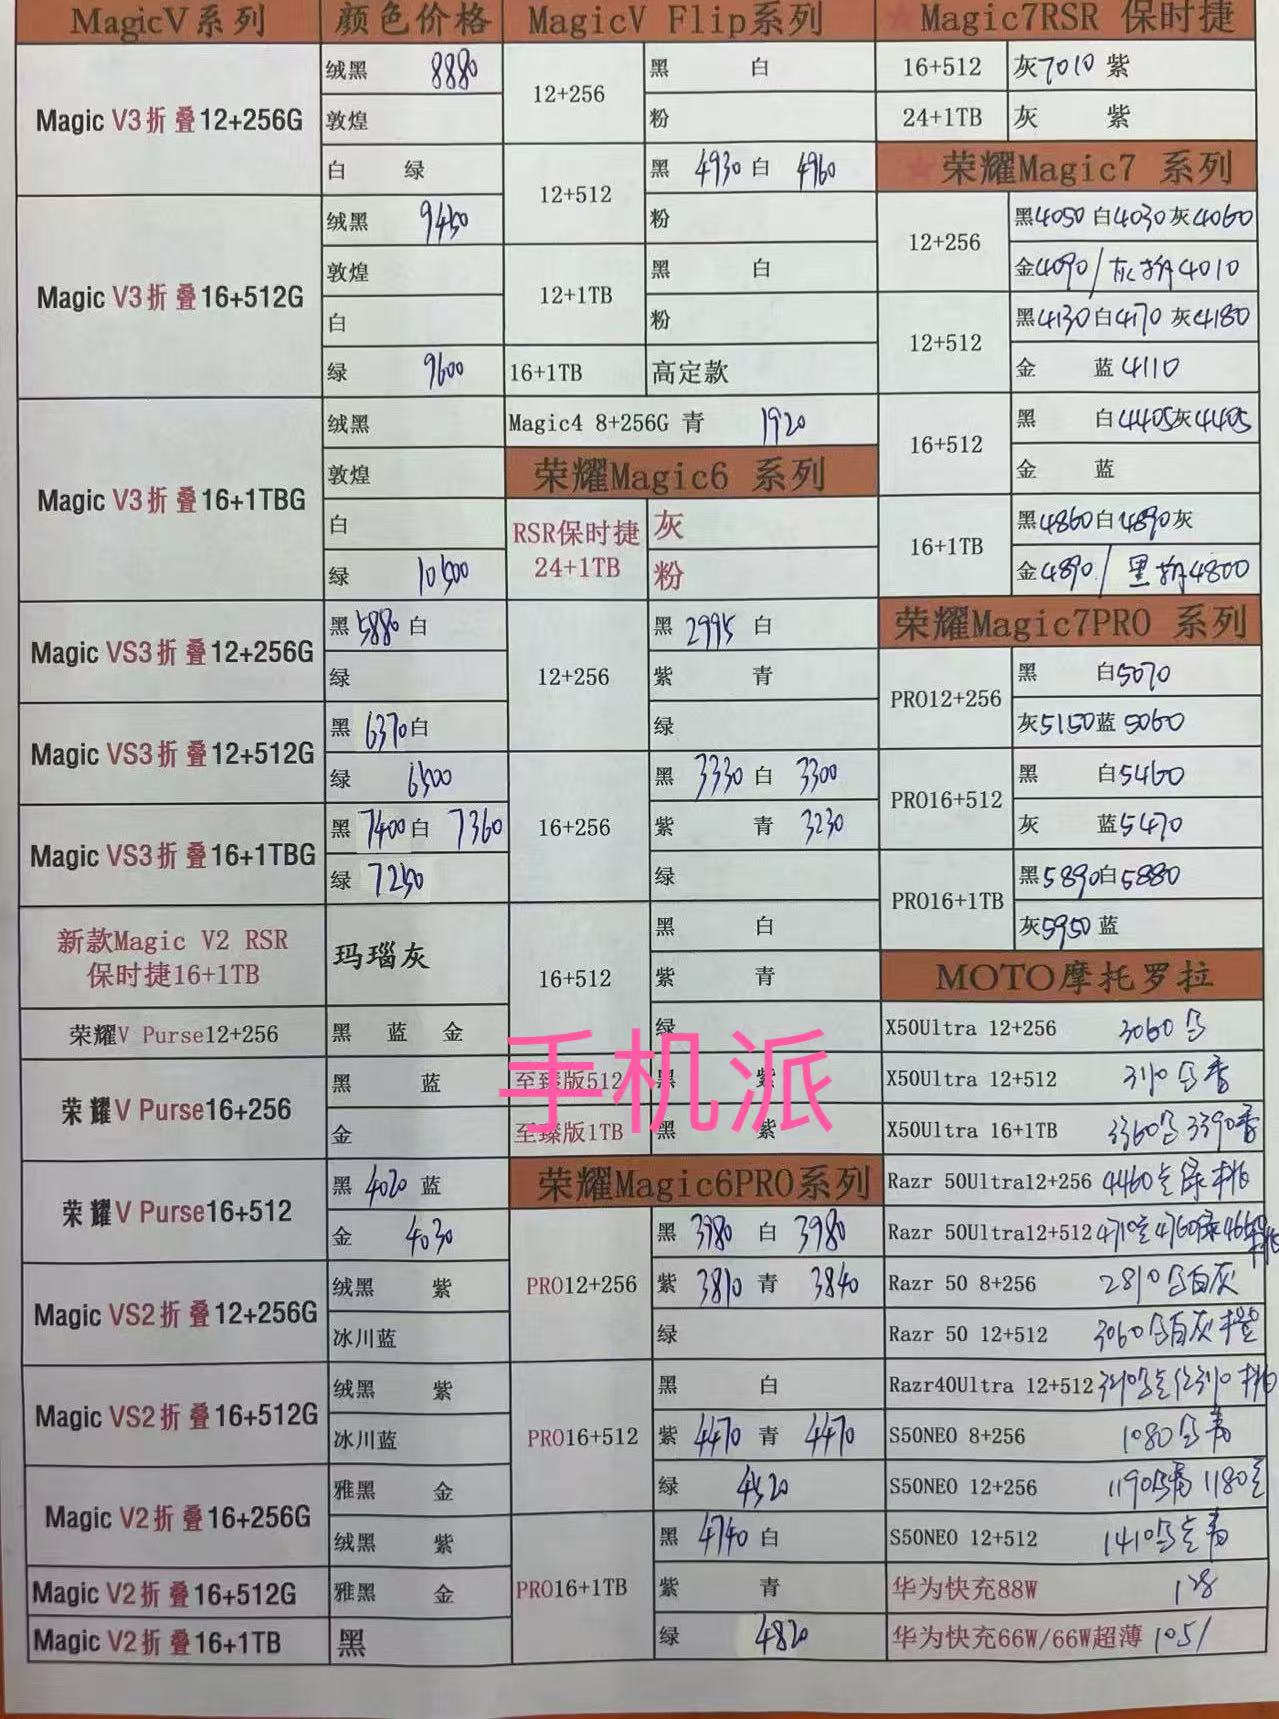 MagicV系列 颜色价格
Magic V3折叠12+256G 绒黑 8880
敦煌
白 绿
Magic V3折叠16+512G 绒黑 9450
敦煌
白
绿 9600
Magic V3折叠16+1TBG 绒黑
敦煌
白
绿 10500
Magic VS3折叠12+256G 黑 5880 白
绿
Magic VS3折叠12+512G 黑 6370 白
绿 6500
Magic VS3折叠16+1TBG 黑 7400 白 7360
绿 7250
新款Magic V2 RSR
保时捷16+1TB 玛瑙灰
荣耀V Purse12+256 黑 蓝 金
荣耀V Purse16+256 黑 蓝
金
荣耀V Purse16+512 黑 4020 蓝
金 4030
Magic VS2折叠12+256G 绒黑 紫
冰川蓝
Magic VS2折叠16+512G 绒黑 紫
冰川蓝
Magic V2折叠16+256G 雅黑 金
绒黑 紫
Magic V2折叠16+512G 雅黑 金
Magic V2折叠16+1TB 黑
MagicV Flip系列
12+256 黑 白
粉
12+512 黑 4930 白 4960
粉
12+1TB 黑 白
粉
16+1TB 高定款
Magic4 8+256G 青 1920
荣耀Magic6 系列
RSR保时捷
24+1TB 灰
粉
12+256 黑 2995 白
紫 青
绿
16+256 黑 3330 白 3300
紫 青 3230
绿
16+512 黑 白
紫 青
绿
手机派
至臻版512 黑 紫
至臻版1TB 黑 紫
荣耀Magic6PRO系列
PRO12+256 黑 3980 白 3980
紫 3810 青 3840
绿
PRO16+512 黑 白
紫 4470 青 4470
绿 4520
PRO16+1TB 黑 4740 白
紫 青
绿 4820
★Magic7RSR 保时捷
16+512 灰7010 紫
24+1TB 灰 紫
★荣耀Magic7 系列
12+256 黑4050 白4030 灰4060
金4090/灰拆4010
12+512 黑4130 白4170 灰4180
金 蓝4110
16+512 黑 白4405 灰4405
金 蓝
16+1TB 黑4860 白4890 灰
金4890/黑拆4800
荣耀Magic7PRO 系列
PRO12+256 黑 白5070
灰5150 蓝5060
PRO16+512 黑 白5460
灰 蓝5470
PRO16+1TB 黑5890 白5880
灰5950 蓝
MOTO摩托罗拉
X50Ultra 12+256 3060
X50Ultra 12+512
X50Ultra 16+1TB 3360 3390
Razr 50Ultra12+256 4460
Razr 50Ultra12+512 4710 4760
Razr 50 8+256 2810 白灰
Razr 50 12+512 3060 白灰橙
Razr40Ultra 12+512
S50NEO 8+256 1080
S50NEO 12+256 1190 1180
S50NEO 12+512 1410
华为快充88W 128
华为快充66W/66W超薄 105/